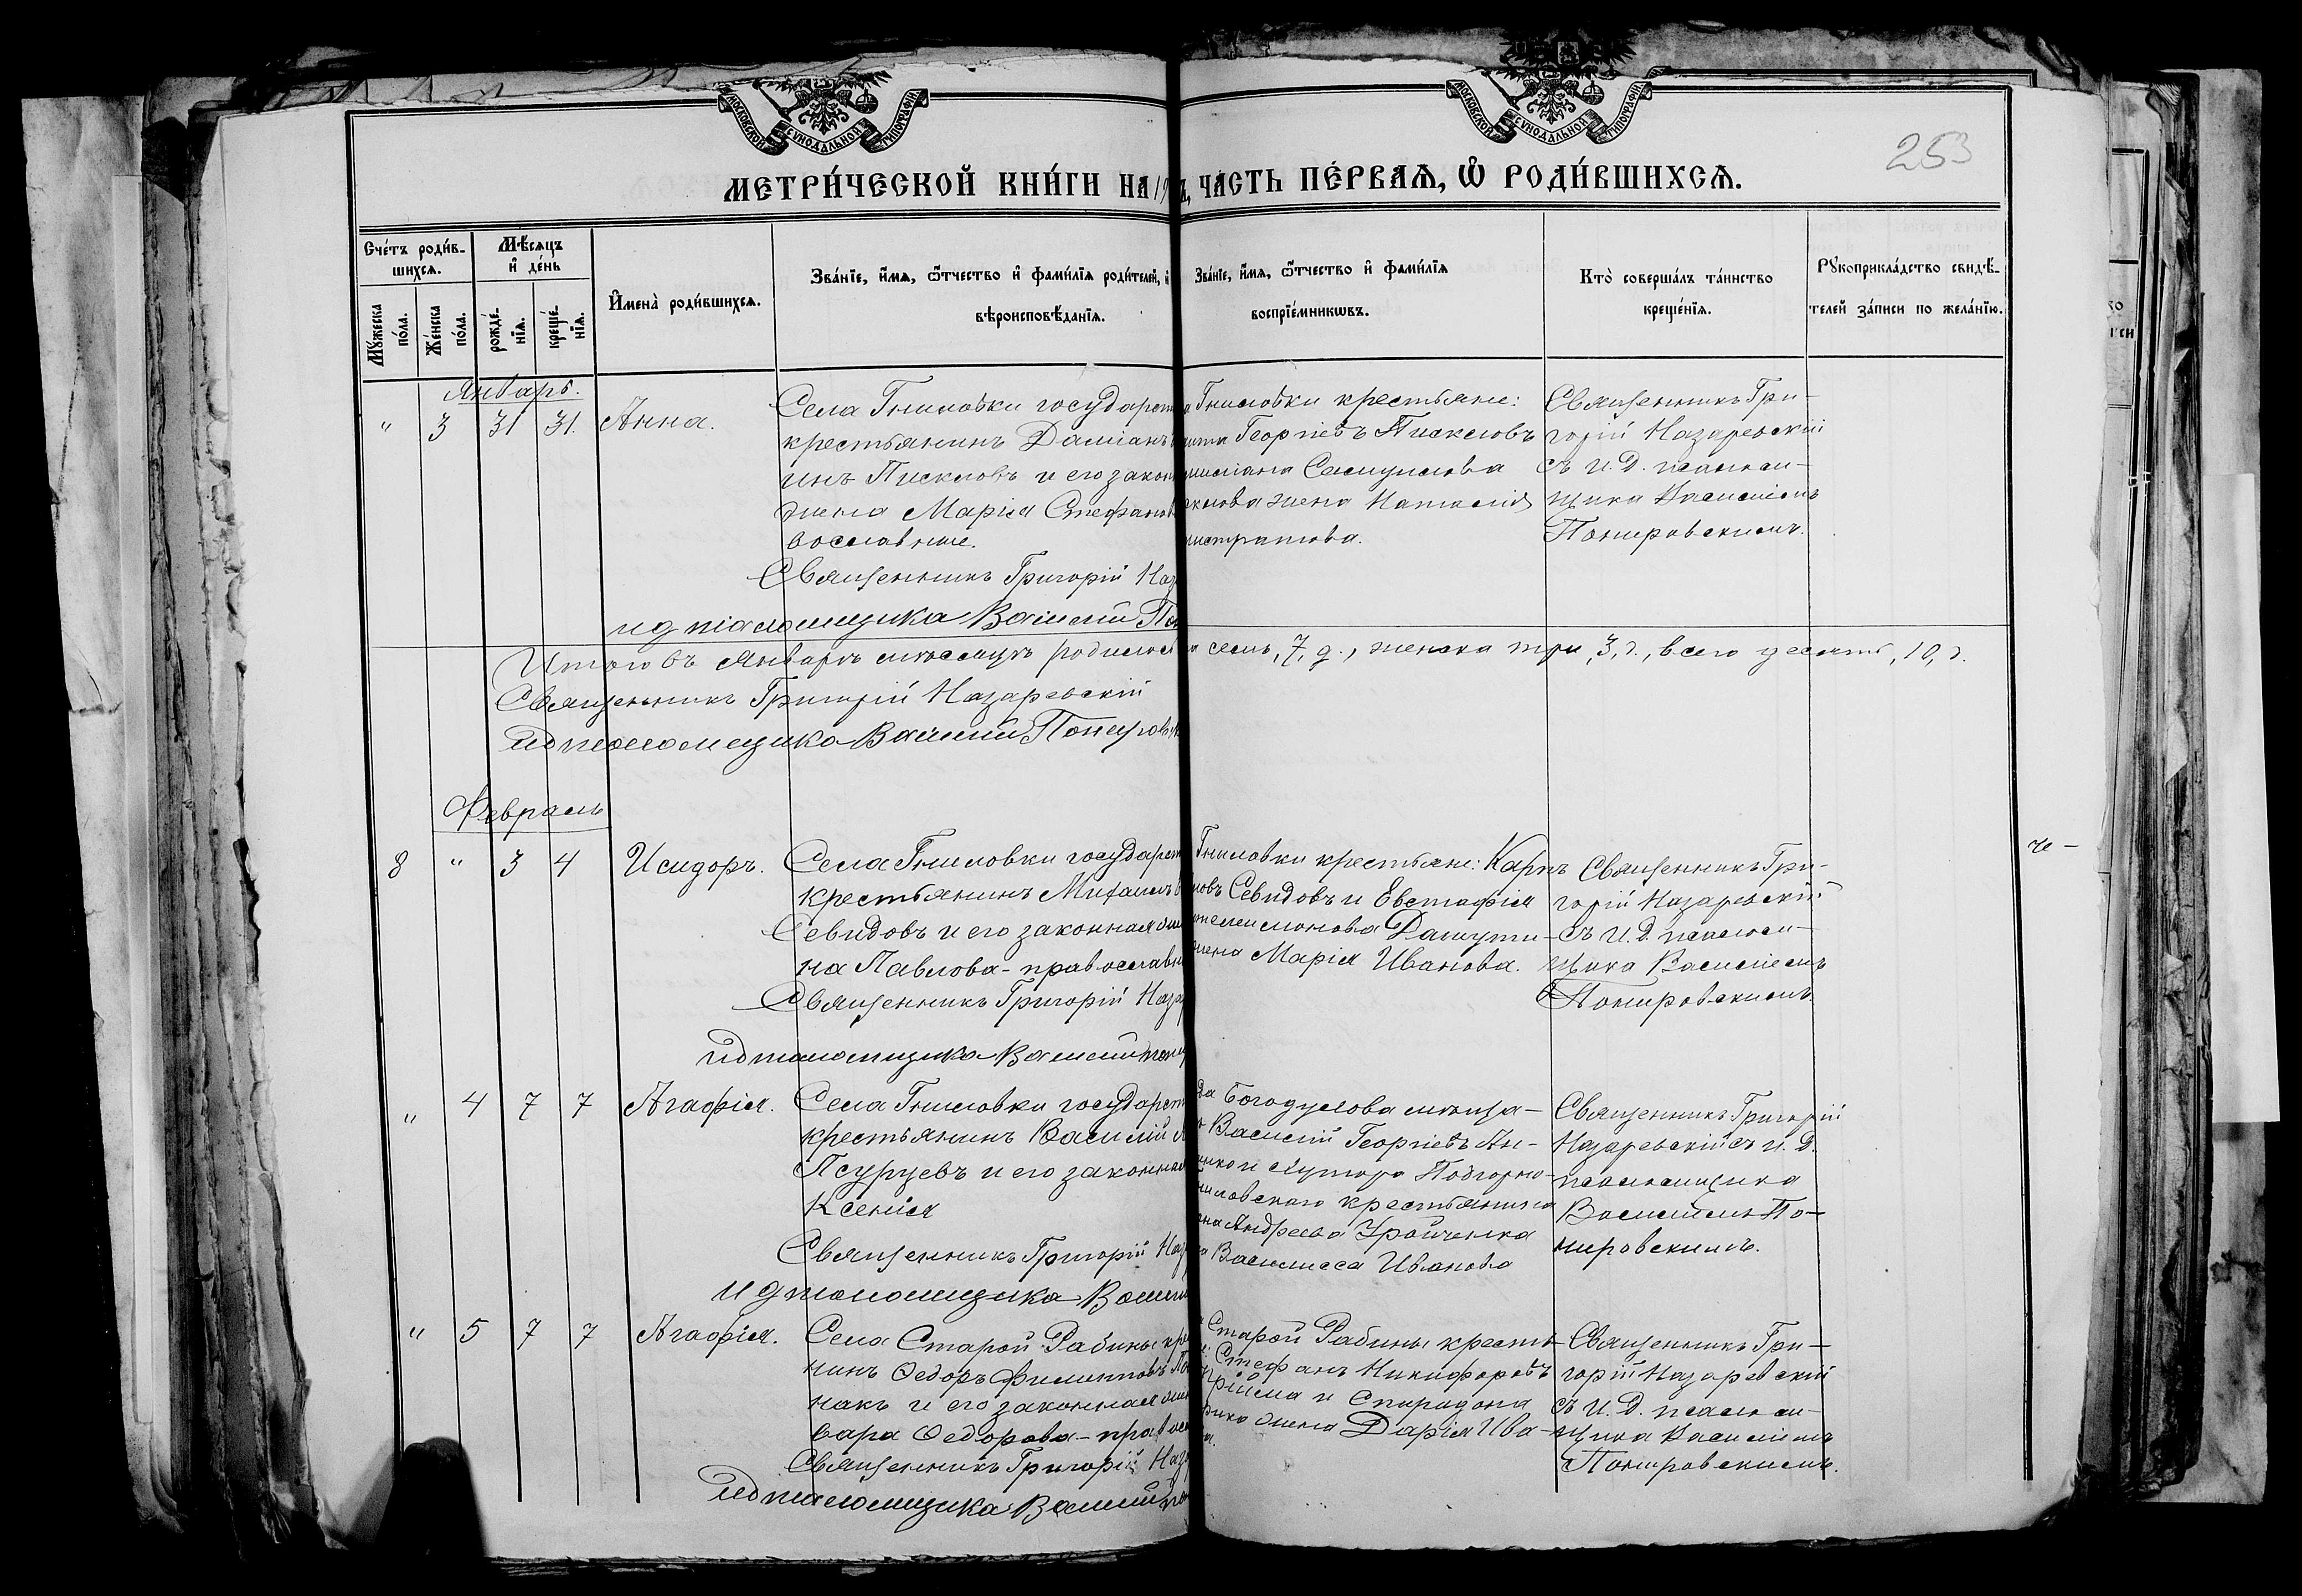 МОСКОВСКОЙ СУНОДАЛЬНОЙ ТИПОГРАФІИ
МОСКОВСКОЙ СУНОДАЛЬНОЙ ТИПОГРАФІИ
253
МЕТРИ́ЧЕСКОЙ КНИ́ГИ НА 19
ЧАСТЬ ПЕ́РВАЯ, Ѡ РОДИ́ВШИХСЯ.
Сче́тъ роди́в-
шихся.
Мꙋ́жеска по́ла.
Же́нска по́ла.
Мѣ́сяцъ и де́нь
рожде́нїя.
креще́нїя.
И҆мена̀ роди́вшихся.
Зва́нїе, и҆́мя, ѻ҆́тчество и҆ фами́лїя роди́телей, и҆
вѣроисповѣ́данїя.
Зва́нїе, и҆́мя, ѻ҆́тчество и҆ фами́лїя
воспрїе́мникѡвъ.
Кто̀ соверша́лъ та́инство
креще́нїя.
Рꙋкоприкла́дство свидѣ́-
телей за́писи по жела́нїю.
Январь.
" 3 31 31. Анна.
Села Гниловки государст
крестьянинъ Даміанъ
инъ Писклов и его закон
жена Марія Стефанов
вославные.
Священникъ Григорій Наз
ид псаломщика Василій По
Гниловки крестьяне:
Георгіевъ Писклов
Самуилова
жена Наталія
истратова.
Священникъ Гри-
горій Назаревскій
съ И. Д. псалом-
щика Василіемъ
Понировскимъ.
Итого въ Январѣ мѣсяцѣ родилось
семь, 7, д., женска три, 3, д., всего десять, 10, д.
Священникъ Григорій Назаревскій
ид псаломщика Василій Пониров
Февраль
8 " 3 4 Исидоръ.
Села Гниловки государст
крестьянинъ Михаилъ
Севидовъ и его законная жен
на Павлова - православн
Священникъ Григорій Назар
ид псаломщика Василій Пони
Гниловки крестьяне: Карпъ
новъ Севидовъ и Евстафія
телеимонова
жена Марія Иванова.
Священникъ Гри-
горій Назаревскій
съ И. Д. псалом-
щика Василіемъ
Понировскимъ.
" 4 7 7 Агафія.
Села Гниловки государст
крестьянинъ Василій
Псурцевъ и его законная
Ксенія
Священникъ Григорій Наз
ид псаломщика Васили
да Богодухова мѣща-
Василій Георгіевъ Ан-
енко и хутора Подгорно-
ниловскаго крестьянина
Андреева
Василисса Иванова
Священникъ Григорій
Назаревскій съ И. Д.
псаломщика
Василіемъ По-
нировскимъ.
" 5 7 7 Агафія.
Села Старой Рабины кре
нинъ Ѳедоръ Филипповъ
накъ и его законная жен
вара Ѳедорова - правос
Священникъ Григорій Наз
ид псаломщика Василій По
Старой Рабины кресть-
Стефанъ Никифоровъ
Прійма и Спиридона
жена Дарія Ива-
Священникъ Гри-
горій Назаревскій
съ И. Д. псалом-
щика Василіемъ
Понировскимъ.